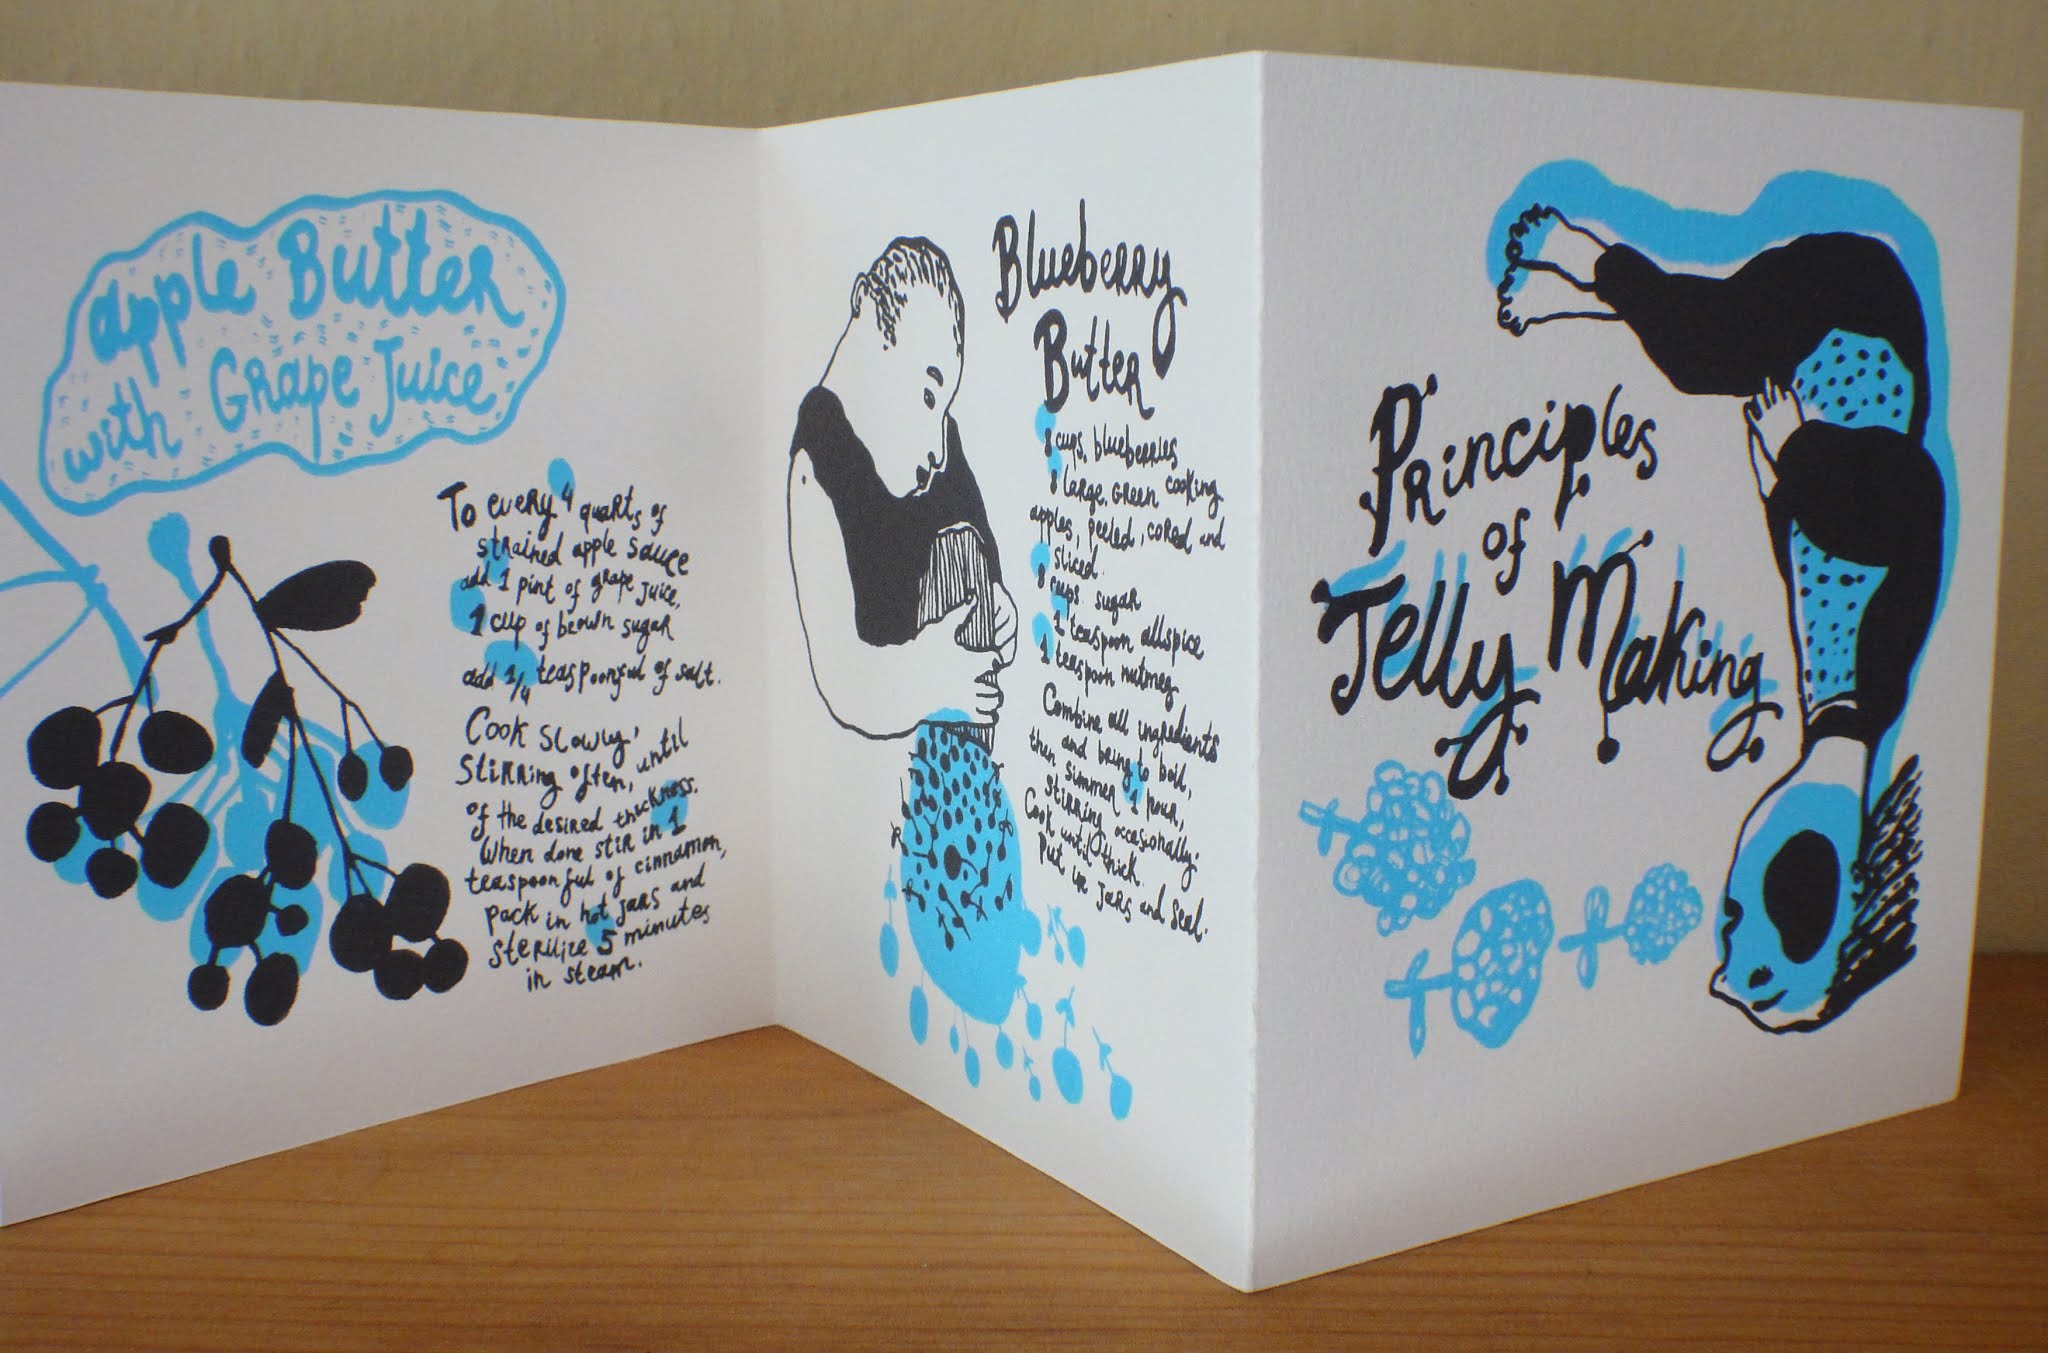 apple Butter
with Grape Juice
To every 4 quarts of
strained apple sauce
add 1 pint of grape juice,
1 cup of brown sugar
add 1/4 teaspoonful of salt.
Cook slowly,
stirring often, until
of the desired thickness.
When done stir in 1
teaspoonful of cinnamon,
pack in hot jars and
sterilize 5 minutes
in steam.
Blueberry
Butter
8 cups, blueberries
8 large, green cooking
apples, peeled, cored and
sliced.
8 cups sugar
1 teaspoon allspice
1 teaspoon nutmeg
Combine all ingredients
and bring to boil,
then simmer 1 hour,
stirring occasionally.
Cook until thick.
Put in jars and seal.
Principles
of
Jelly Making